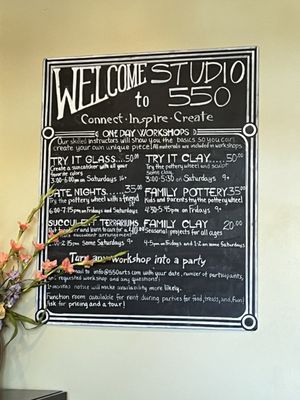 WELCOME
to
STUDIO
550
Connect·Inspire·Create
ONE DAY WORKSHOPS
Our skilled instructors will show you the basics so you can
create your own unique piece! All materials are included in workshop.
TRY IT GLASS....50.00
Create a suncatcher with all your
favorite colors
on Saturdays
TRY IT CLAY.....50.00
Try the pottery wheel and sculpt
some clay
3:00-5:30 on Saturdays 9+
DATE NIGHTS.....35.00
Try the pottery wheel with a friend
6:00-7:15pm on Fridays and Saturdays
FAMILY POTTERY.35.00
Kids and Parents try the pottery wheel!
4:30-5:45pm on Fridays 9+
SUCCULENT TERRARIUMS
and learn to care for a
succulent arrangement
some Saturdays 9+
FAMILY CLAY 20.00
Seasonal projects for all ages
on Fridays and 1-2 on some Saturdays
Turn any workshop into a party
info@550arts.com with your date, number of participants,
requested workshop and any questions!
notice will make availability more likely.
Function room available for rent during parties for food, treats, and fun!
Ask for pricing and a tour!